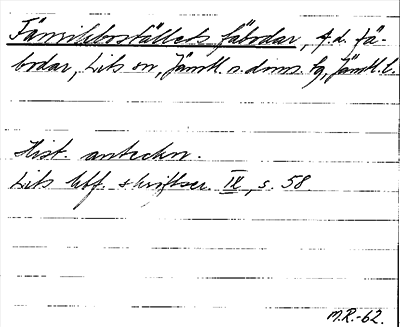 Fänrikbostället fäbodar, f.d. fä-
bodar, Lits sn, Jämtl. s. doms. tg, Jämtl. l.
Hist. anteckn.
Lits hbf. skriftser. IV, s. 58.
M.R.-62.